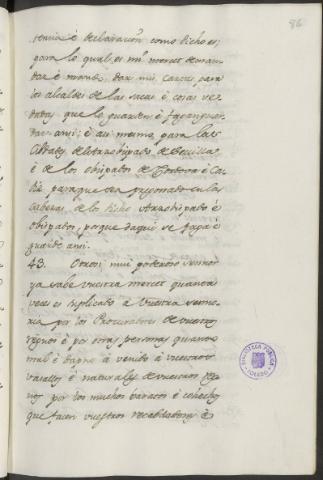 86
tencia è declaracion como dicho es;
para lo qual es mi merced de man-
dar è mando dar mis cartas para
los alcaldes de las sacas è cosas ve-
dadas, que lo guarden è fagan guar-
dar ansi; è asi mesmo para las
Cibdades del Arzobispado de Sevilla
è de los obispados de Cordova è Ca-
diz para que sea pregonado en las
cabezas de los dichos Arzobispado è
obispados, porque daqui se faga è
guarde ansi.
43. Otrosi, mui poderoso señor
ya sabe vuestra merced quantas
veces es suplicado à vuestra seño-
ria por los Procuradores de vuestros
regnos è por otras personas quanto
mal è dapno à venido à vuestros
vasallos è naturales de vuestros reg-
nos por los muchos baratos è cohechos
que facen vuestros recabdadores è
BIBLIOTECA PUBLICA
TOLEDO